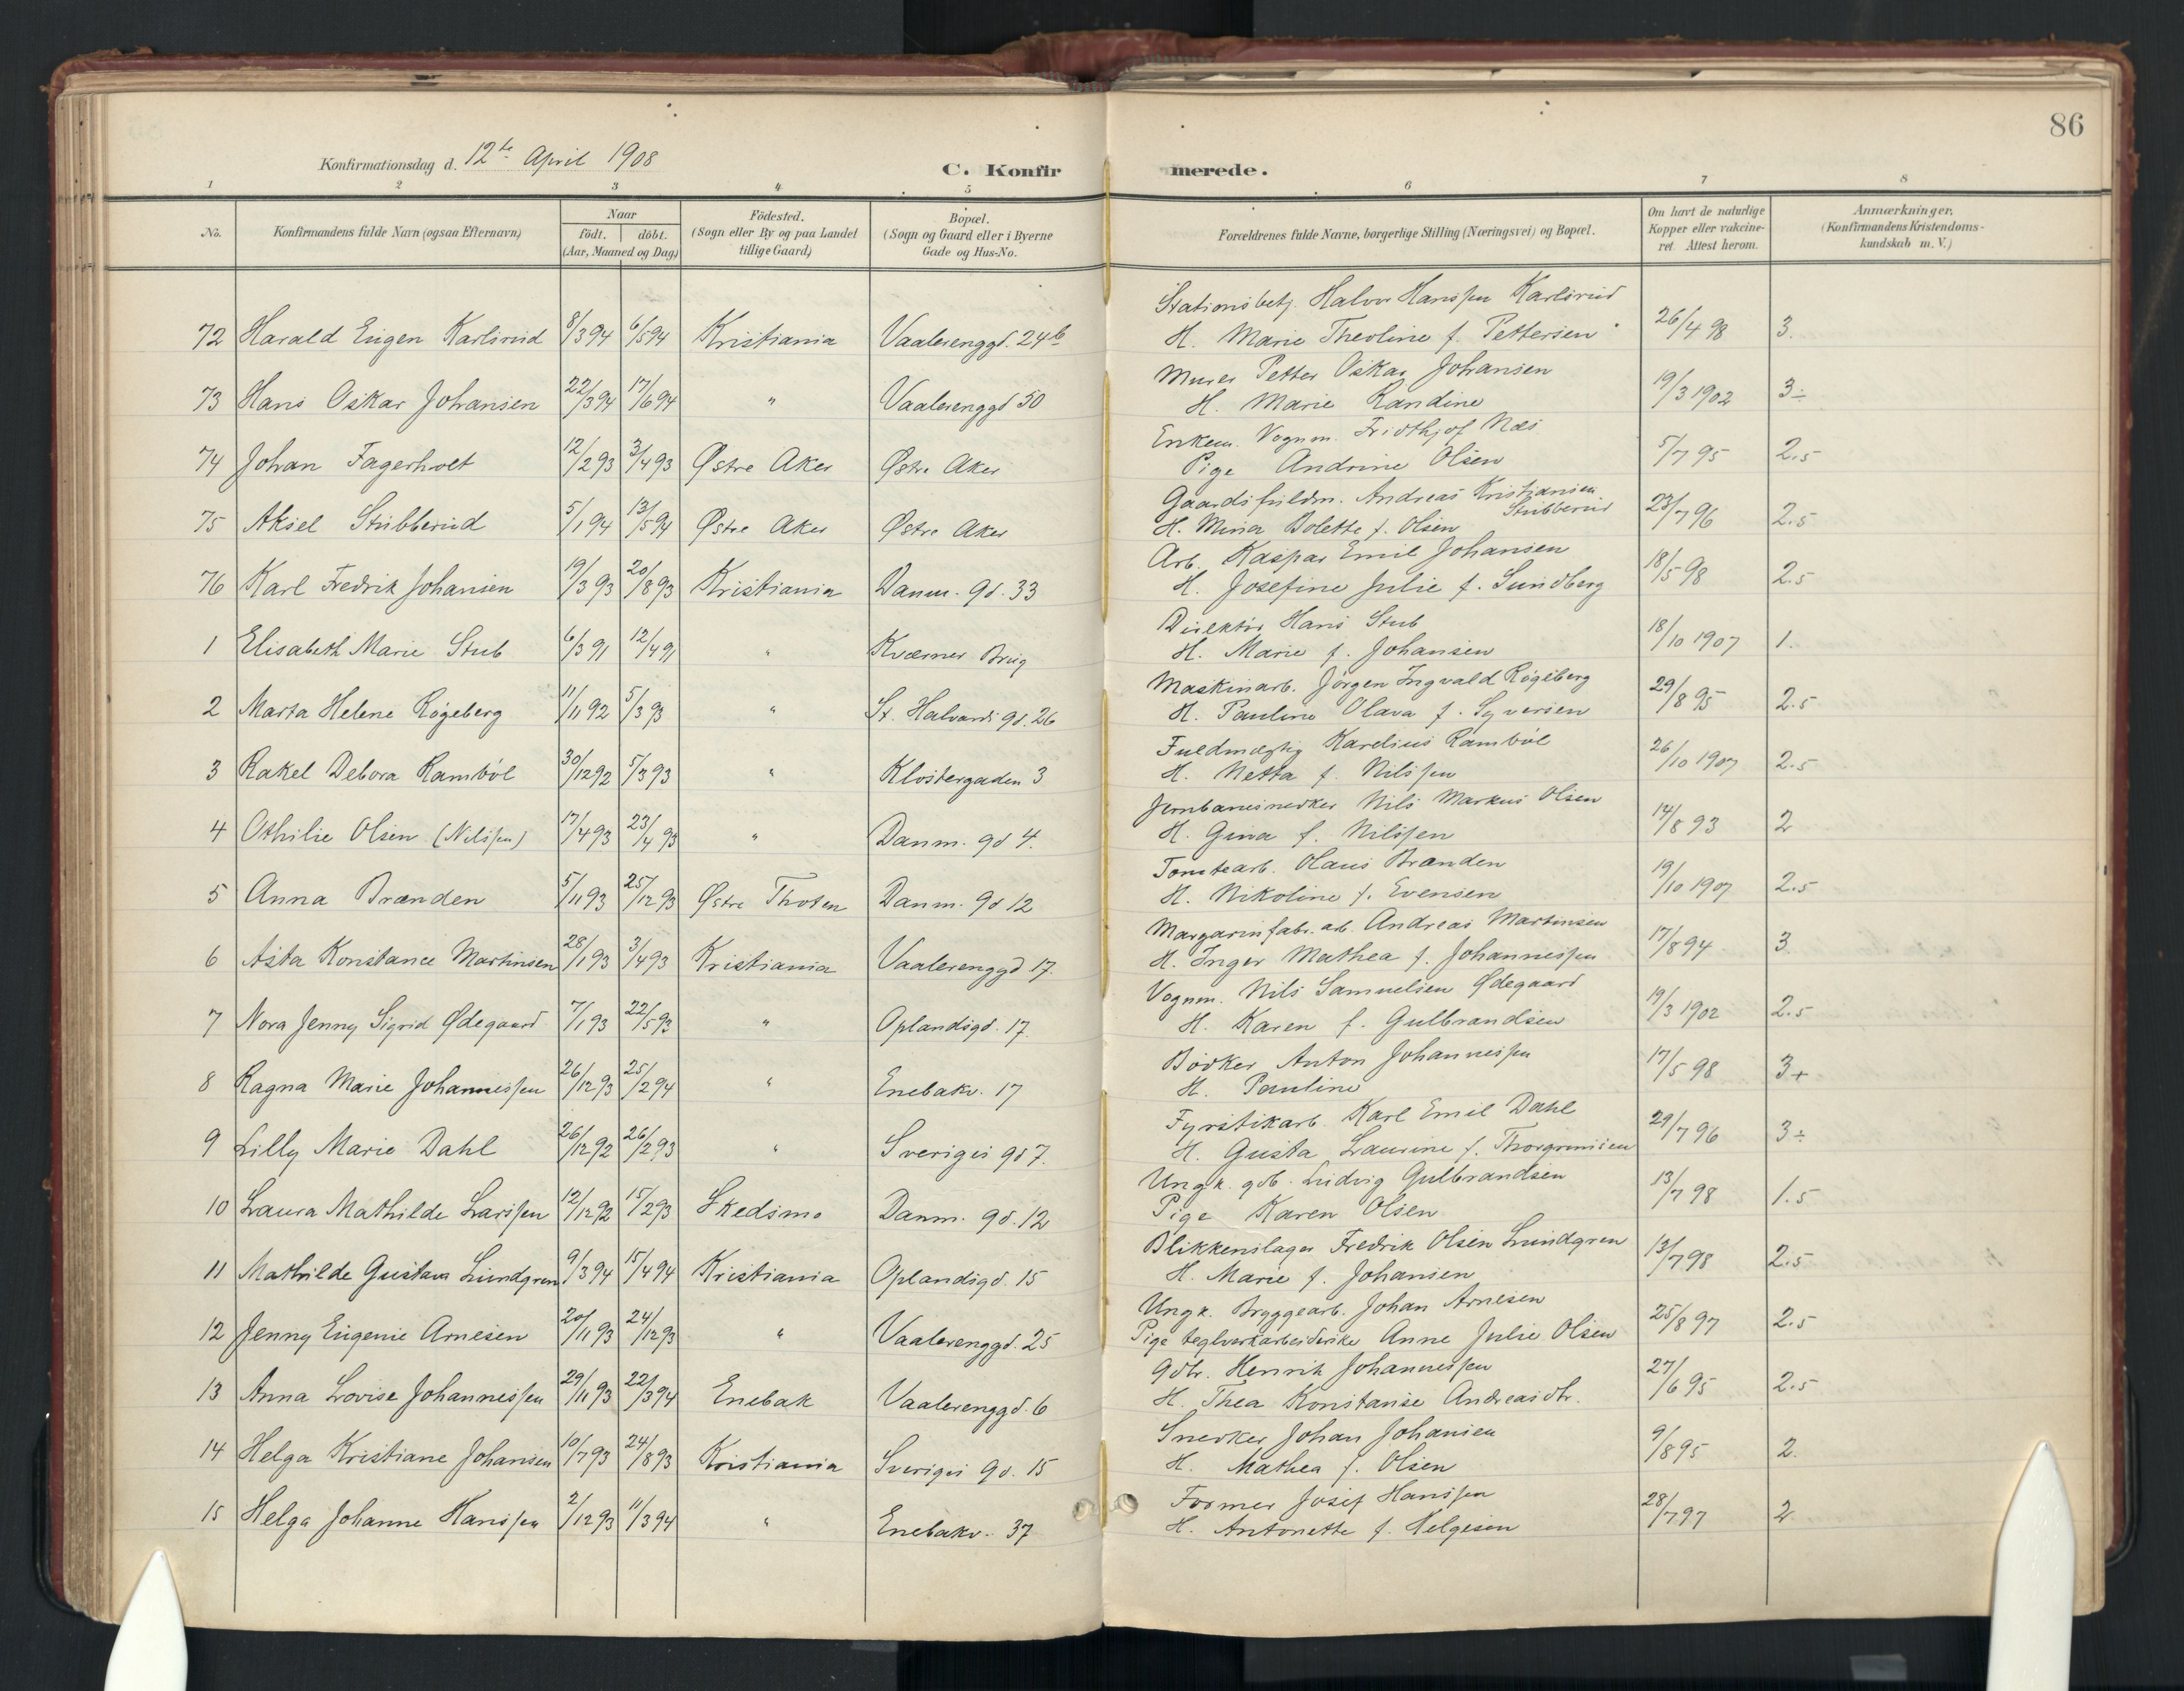 86
Konfirmationsdag d. 12te April 1908
C. Konfirmerede.
1 2 3 4 5 6 7 8
No. Konfirmandens fulde Navn (ogsaa Efternavn) Naar födt. döbt. (Aar, Maaned og Dag) Födested. (Sogn eller By og paa Landet tillige Gaard) Bopæl. (Sogn og Gaard eller i Byerne Gade og Hus-No. Forældrenes fulde Navne, borgerlige Stilling (Næringsvei) og Bopæl. Om havt de naturlige Kopper eller vakcineret. Attest herom. Anmærkninger. (Konfirmandens Kristendomskundskab m. V.)
72 Harald Eugen Karlsrud 8/3 94 6/5 94 Kristiania Vaalerenggd. 24b Stationsbetj. Halvor Hanssen Karlsrud
H. Marie Theoline f. Pettersen 26/4 98 3.
73 Hans Oskar Johansen 22/3 94 17/6 94 " Vaalerenggd 50 Murer Petter Oskar Johansen
H. Marie Randine 19/3 1902 3÷
74 Johan Fagerholt 12/2 93 3/4 93 Østre Aker Østre Aker Enkem. Vognm. Fridthjof Næs
Pige Andrine Olsen 5/7 95 2.5
75 Aksel Stubberud 5/1 94 13/5 94 Østre Aker Østre Aker Gaardsfuldm. Andreas Kristiansen Stubberud
H. Mina Bolette f. Olsen 23/7 96 2.5
76 Karl Fredrik Johansen 19/3 93 20/8 93 Kristiania Danm. gd. 33 Arb. Kaspar Emil Johansen
H. Josefine Julie f. Sundberg 18/5 98 2.5
1 Elisabeth Marie Stub 6/3 91 12/4 91 " Kværner Brug Direktør Hans Stub
H. Marie f. Johansen 18/10 1907 1.
2 Marta Helene Røgeberg 11/11 92 5/3 93 " St. Halvards gd. 26 Maskinarb. Jørgen Ingvald Røgeberg
H. Pauline Olava f. Syversen 29/8 95 2.5
3 Rakel Debora Rambøl 30/12 92 5/3 93 " Klostergaden 3 Fuldmægtig Karelius Rambøl
H. Netta f. Nilssen 26/10 1907 2.5
4 Othilie Olsen (Nilssen) 17/4 93 23/4 93 " Danm. gd 4. Jernbanesnedker Nils Markus Olsen
H. Gina f. Nilssen 14/8 93 2
5 Anna Brænden 5/11 93 25/12 93 Østre Thoten Danm. gd 12 Tomtearb. Olaus Brænden
H. Nikoline f. Evensen 19/10 1907 2.5
6 Asta Konstance Martinsen 28/1 93 3/4 93 Kristiania Vaalerenggd 17. Margarinfabr. arb. Andreas Martinsen
H. Inger Mathea f. Johannessen 17/8 94 3
7 Nora Jenny Sigrid Ødegaard 7/1 93 22/5 93 " Oplandsgd. 17. Vognm. Nils Samuelsen Ødegaard
H. Karen f. Gulbrandsen 19/3 1902 2.5
8 Ragna Marie Johannessen 26/12 93 25/2 94 " Enebakv. 17 Bødker Anton Johannessen
H. Pauline 17/5 98 3+
9 Lilly Marie Dahl 26/12 92 26/2 93 " Sveriges gd 7. Fyrstikarb. Karl Emil Dahl
H. Gusta Laurine f. Thorgrimsen 29/7 96 3÷
10 Laura Mathilde Larssen 12/12 92 15/2 93 Skedsmo Danm. gd. 12 Ungk. gdb. Ludvig Gulbrandsen
Pige Karen Olsen 13/7 98 1.5
11 Mathilde Gustava Lundgren 9/3 94 15/4 94 Kristiania Oplandsgd. 15 Blikkenslager Fredrik Olsen Lundgren
H. Marie f. Johansen 13/7 98 2.5
12 Jenny Eugenie Arnesen 20/11 93 24/12 93 " Vaalerenggd. 25 Ungk. Bryggearb. Johan Arnesen
Pige teglverkarbeiderske Anne Julie Olsen 25/8 97 2.5
13 Anna Lovise Johannessen 29/11 93 22/3 94 Enebak Vaalerenggd. 6 Gdbr. Henrik Johannessen
H. Thea Konstanse Andreasdtr. 27/6 95 2.5
14 Helga Kristiane Johansen 10/7 93 24/8 93 Kristiania Sveriges gd. 15 Snedker Johan Johansen
H. Mathea f. Olsen 9/8 95 2.
15 Helga Johanne Hanssen 2/12 93 11/3 94 " Enebakv. 37 Former Josef Hanssen
H. Antonette f. Helgesen 28/7 97 2